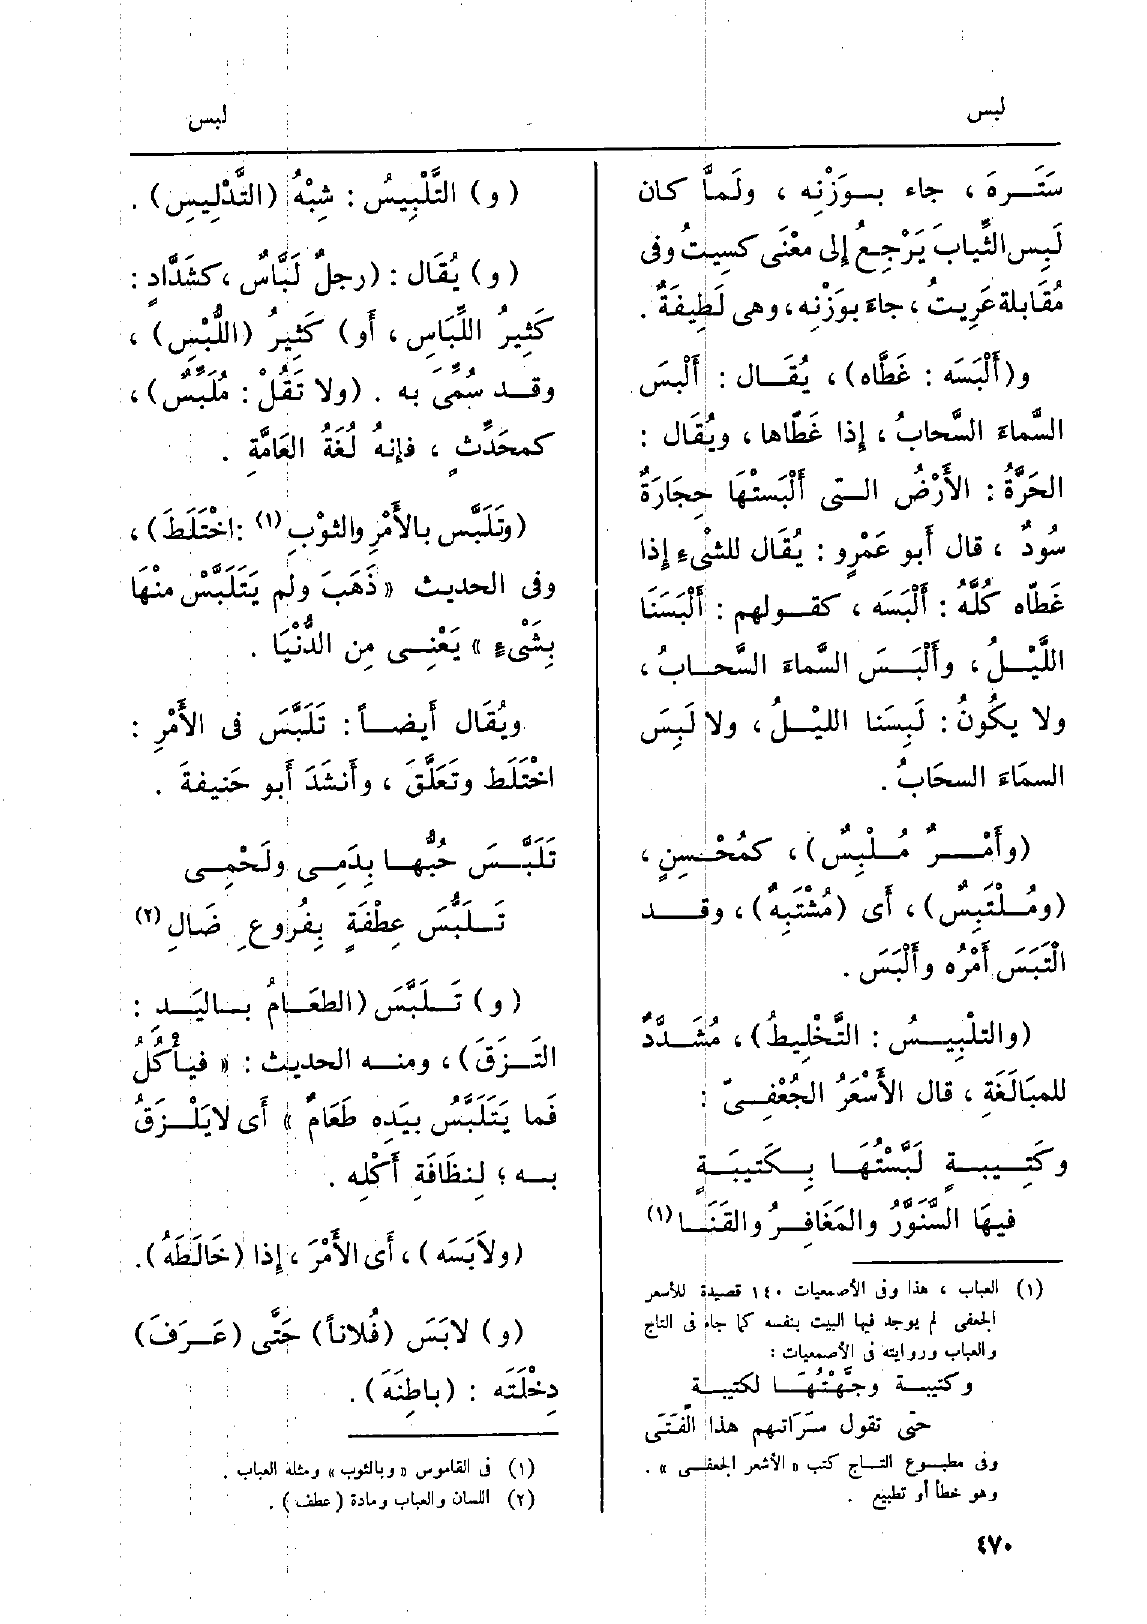 لبس
لبس
سَتَـرهَ ، جاء بـوَزْنِه ، ولَمَّا كان
لَبِس الثِّيابَ يَرْجِعُ إلى مَعْنَى كسِيتُ وفى
مُقَابلة عَرِيتُ ، جاءَ بوَزْنِه ، وهى لَطِيفَةٌ .
و(أَلْبَسَه : غَطَّاه) ، يُقَـال : أَلْبَسَ
السَّماءَ السَّحابُ ، إذا غَطَّاها ، ويُقَال :
الحَرَّةُ : الأَرْضُ التى أَلْبَستْهَا حِجَارَةٌ
سُودٌ ، قال أَبو عَمْرٍو : يُقَال للشْىءِ إذا
غَطّاه كُلَّهُ : أَلْبَسَه ، كقـولهم : أَلْبَسَنَا
اللَّيْـلُ ، وأَلْبَـسَ السَّماءَ السَّحـابُ ،
ولا يكُونُ : لَبِسَنا الليْـلُ ، ولا لَبِسَ
السمَاءَ السحَابُ .
(وأَمْـرٌ مُـلْبِسٌ) ، كمُحْسِنٍ ،
(ومُـلْتَبِسٌ) ، أَى (مُشْتَبِهٌ) ، وقـد
الْتَبَسَ أَمْرُه وأَلْبَسَ .
(والتلْبِيـسُ : التَّخْلِيطُ) ، مُشَـدَّدٌ
للمبَالَغَةِ ، قال الأَسْعَرُ الجُعْفِـىّ :
وكَتِـيبـةٍ لَبَّسْتُهَـا بِـكَتيبَـةٍ
فيهَا السَّنَوَّرُ والمَغَافِـرُ والقَنَـا (١)
(١) العباب ، هذا وفى الأصمعيات ١٤٠ قصيدة للأسعر
الجعفى لم يوجد فيها البيت بنفسه كما جاء فى التاج
والعباب وروايته فى الأصمعيات :
وكتيبـة وجَّهْتُهَـا لكتيبـةٍ
حتى تقول سَرَاتهم هذا الفَتَى
وفى مطبـوع التـاج كتب « الأشعر الجعفـى » .
وهو خطأ أو تطبيع .
(و) التَّلْبِيسُ : شِبْهُ (التَّدْلِيسِ) .
(و) يُقَال : (رجلٌ لَبَّاسٌ ، كشَدَّادٍ :
كَثِيرُ اللِّبَاسِ ، أَو) كَثِيرُ (اللُّبْسِ) ،
وقـد سُمِّىَ به . (ولا تَقُلْ : مُلَبِّسٌ) ،
كمحَدِّثٍ ، فإنهُ لُغَةُ العَامَّةِ .
(وتَلَبَّس بالأَمْرِ والثوْبِ (١) : اخْتَلَطَ) ،
وفى الحديث « ذَهَبَ ولم يَتَلَبَّسْ منْهَا
بِشَىْءٍ » يَعْنِـى مِن الدُّنْيَا .
ويُقَال أَيضـاً : تَلَبَّسَ فى الأَمْرِ :
اخْتَلَط وتَعَلَّقَ ، وأَنشَدَ أَبو حَنيفةَ .
تَلَبَّـسَ حُبُّهـا بِدَمِـى ولَحْمِـى
تَـلَبُّسَ عِطْفَةٍ بِفُروعِ ضَالِ (٢)
(و) تَـلَبَّسَ (الطعَـامُ بـاليَـدِ :
التَـزَقَ) ، ومنـه الحديث : « فيأْكُلُ
فَما يَتَلَبَّسُ بيَدِه طَعَامٌ » أَى لايَلْـزَقُ
بـه ؛ لِنظَافَةِ أَكْلِه .
(ولاَبَسَه) ، أَى الأَمْرَ ، إذا (خَالَطَهُ) .
(و) لابَسَ (فُلاناً) حَتَّى (عَـرَفَ)
دِخْلَتَه : (باطِنَهَ) .
(١) فى القاموس « وبالثوب » ومثله العباب .
(٢) اللسان والعباب ومادة (عطف) .
٤٧٠